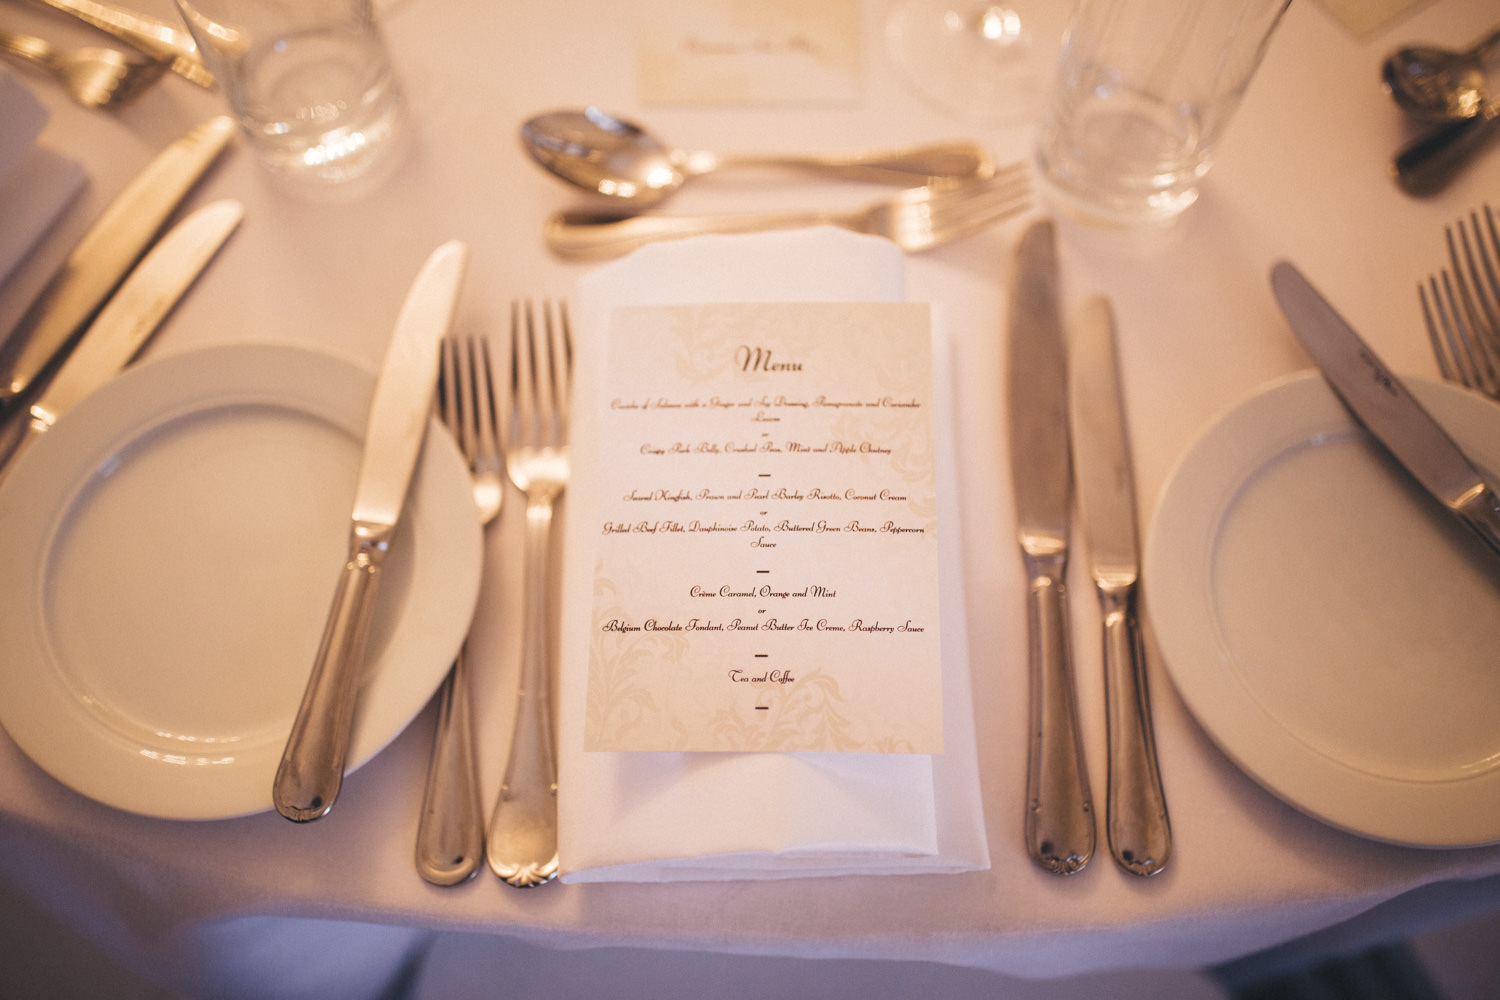 Menu
Ceviche of Salmon with a Ginger and Soy Dressing, Pomegranate and Coriander
Leaves
or
Crispy Pork Belly, Crushed Peas, Mint and Apple Chutney
—
Seared Kingfish, Prawn and Pearl Barley Risotto, Coconut Cream
or
Grilled Beef Fillet, Dauphinoise Potato, Buttered Green Beans, Peppercorn
Sauce
—
Crème Caramel, Orange and Mint
or
Belgium Chocolate Fondant, Peanut Butter Ice Creme, Raspberry Sauce
—
Tea and Coffee
—